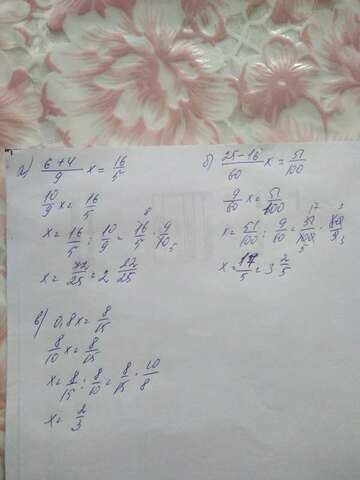 а) (6+4)/9 x = 16/5
10/9 x = 16/5
x = 16/5 : 10/9 = 16/5 · 9/10 8 5
x = 72/25 = 2 22/25
б) (25-16)/60 x = 51/100
9/60 x = 51/100
x = 51/100 : 9/60 = 51/100 · 60/9 17 3 5 3
x = 17/5 = 3 2/5
в) 0,8x = 8/15
8/10 x = 8/15
x = 8/15 : 8/10 = 8/15 · 10/8
x = 2/3